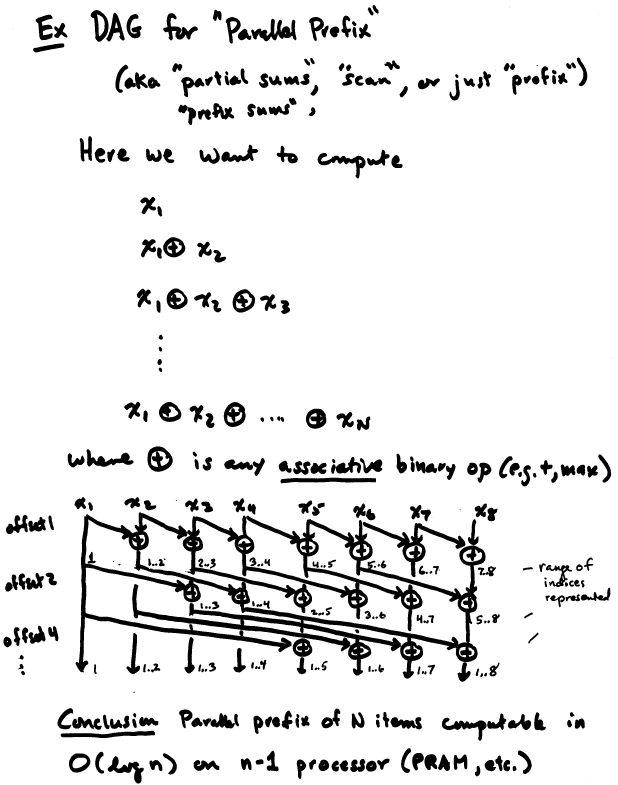 Ex DAG for "Parallel Prefix"
(aka "partial sums", "scan", or just "prefix")
"prefix sums",
Here we want to compute
x₁
x₁ ⊕ x₂
x₁ ⊕ x₂ ⊕ x₃
⋮
x₁ ⊕ x₂ ⊕ .... ⊕ x_N
where ⊕ is any associative binary op (e.g. +, max)
x₁ x₂ x₃ x₄ x₅ x₆ x₇ x₈
offset 1
1 1..2 2..3 3..4 4..5 5..6 6..7 7..8 – range of
offset 2 indices
represented
1..3 1..4 2..5 3..6 4..7 5..8
offset 4
⋮
1 1..2 1..3 1..4 1..5 1..6 1..7 1..8
Conclusion Parallel prefix of N items computable in
O(log n) on n-1 processor (PRAM, etc.)